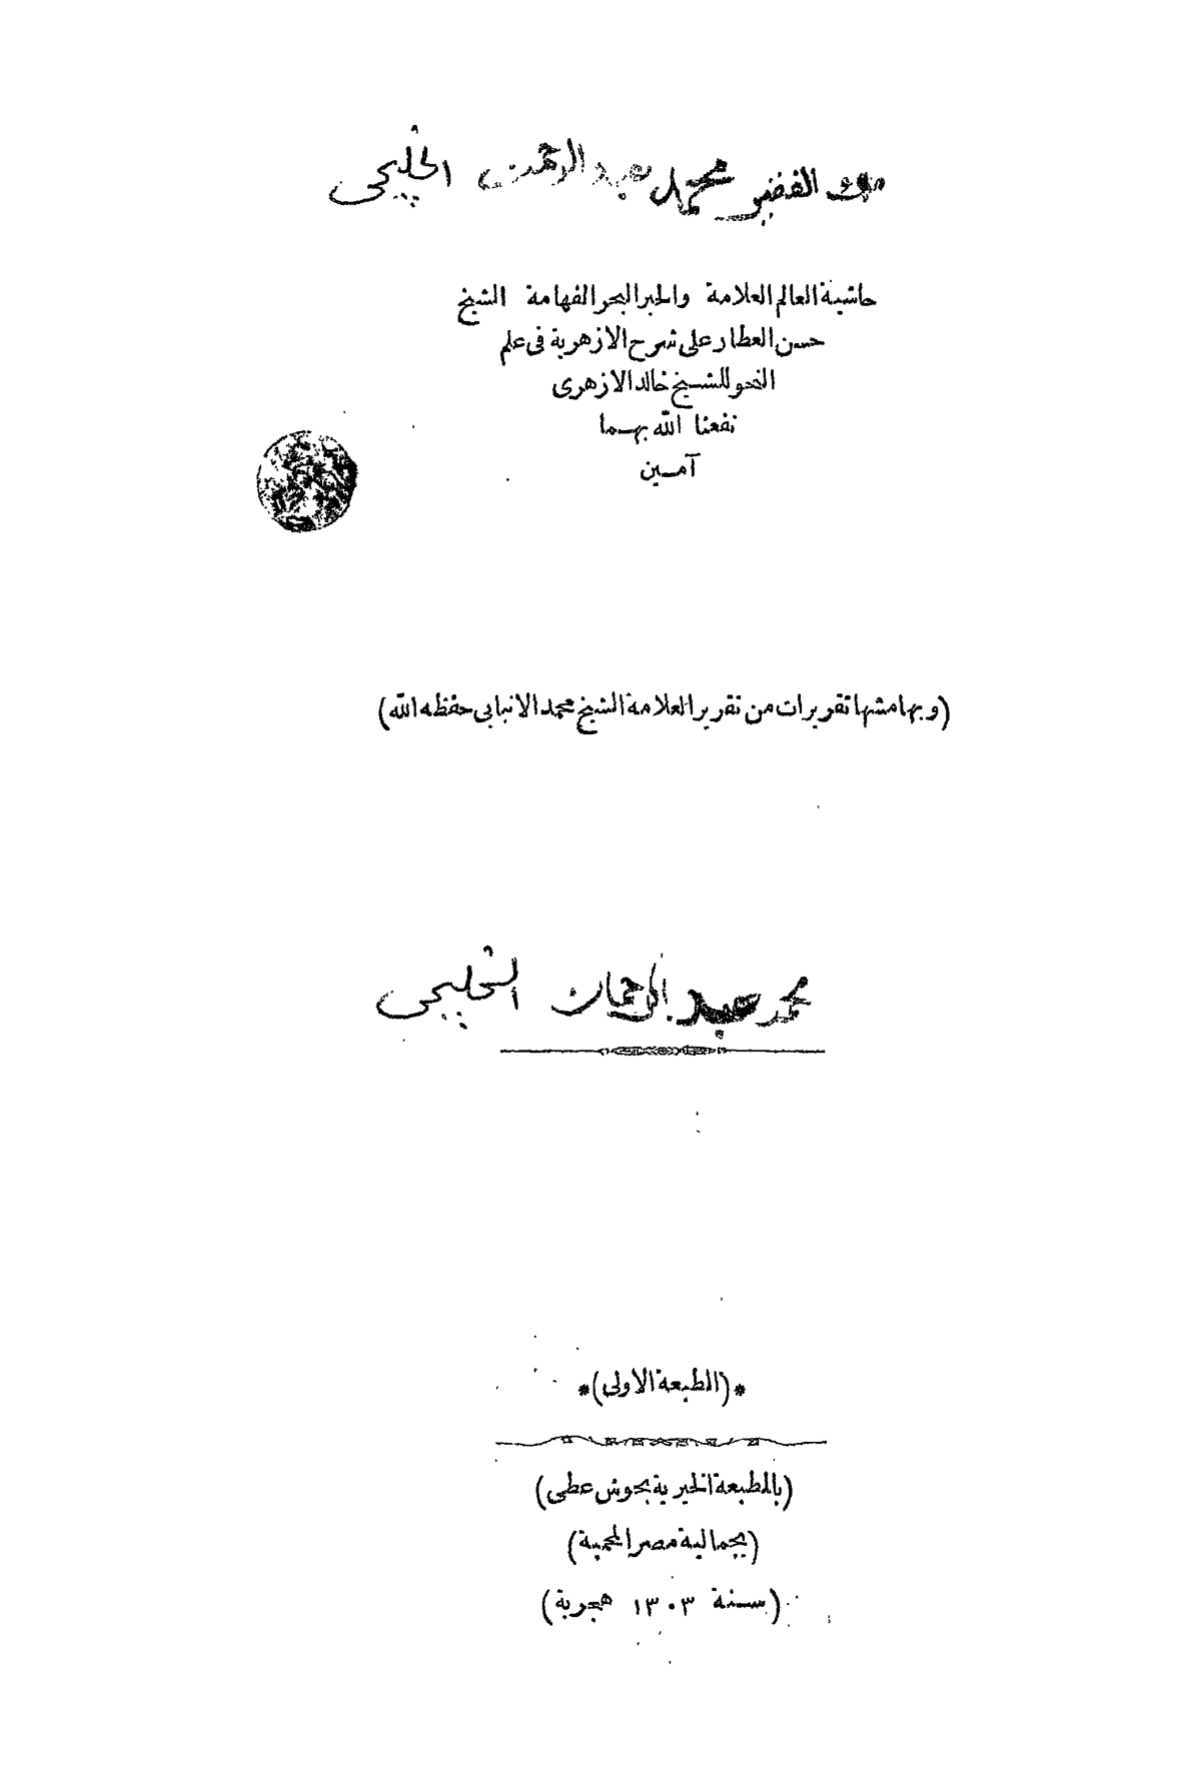 ملك الفقير محمد عبد الرحمن الخليجى
حاشية العالم العلامة والحبر البحر الفهامة الشيخ
حسن العطار على شرح الازهرية فى علم
النحو للشيخ خالد الازهرى
نفعنا الله بهما
آمين
(وبهامشها تقريرات من تقرير العلامة الشيخ محمد الانبابى حفظه الله)
محمد عبد الرحمان الخليجى
*(الطبعة الاولى)*
(بالمطبعة الخيرية بحوش عطى)
(بجمالية مصر المحمية)
(سنة ١٣٠٣ هجرية)